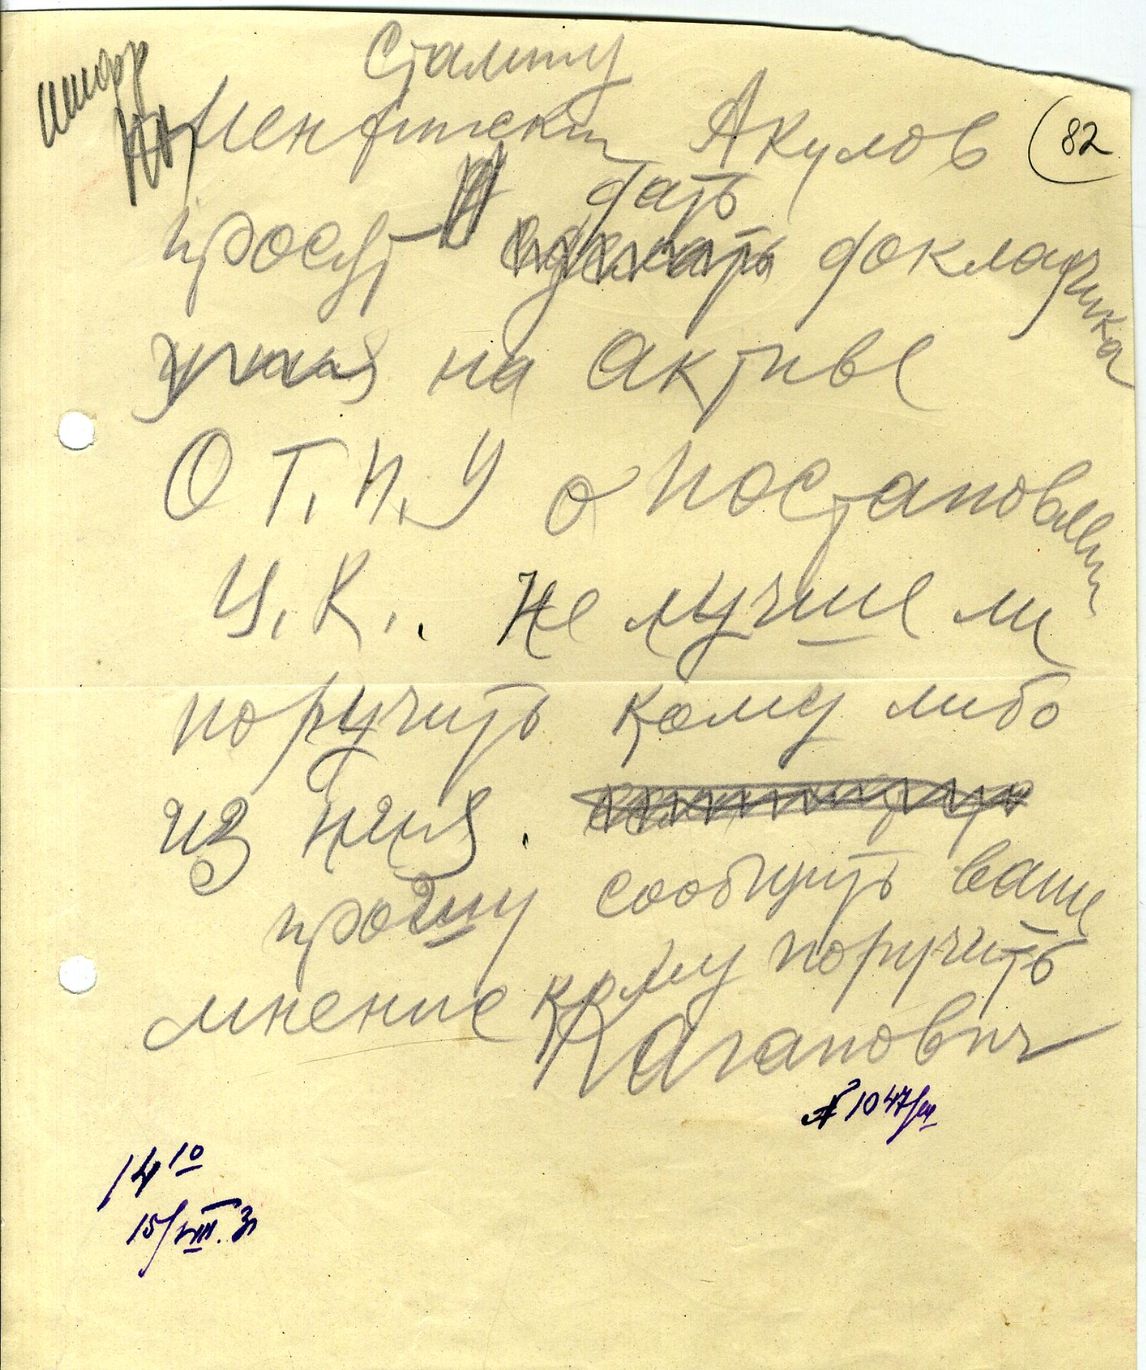 шифр
Сталину
Менжинский Акулов
82
дать
просят сделать докладчика
на активе
О Г. П. У о постановлении
Ц. К. . Не лучше ли
поручить кому либо
из них.
прошу сообщить ваше
мнение кому поручить
Каганович
№ 1047/ш
14 10
15/VIII. 31